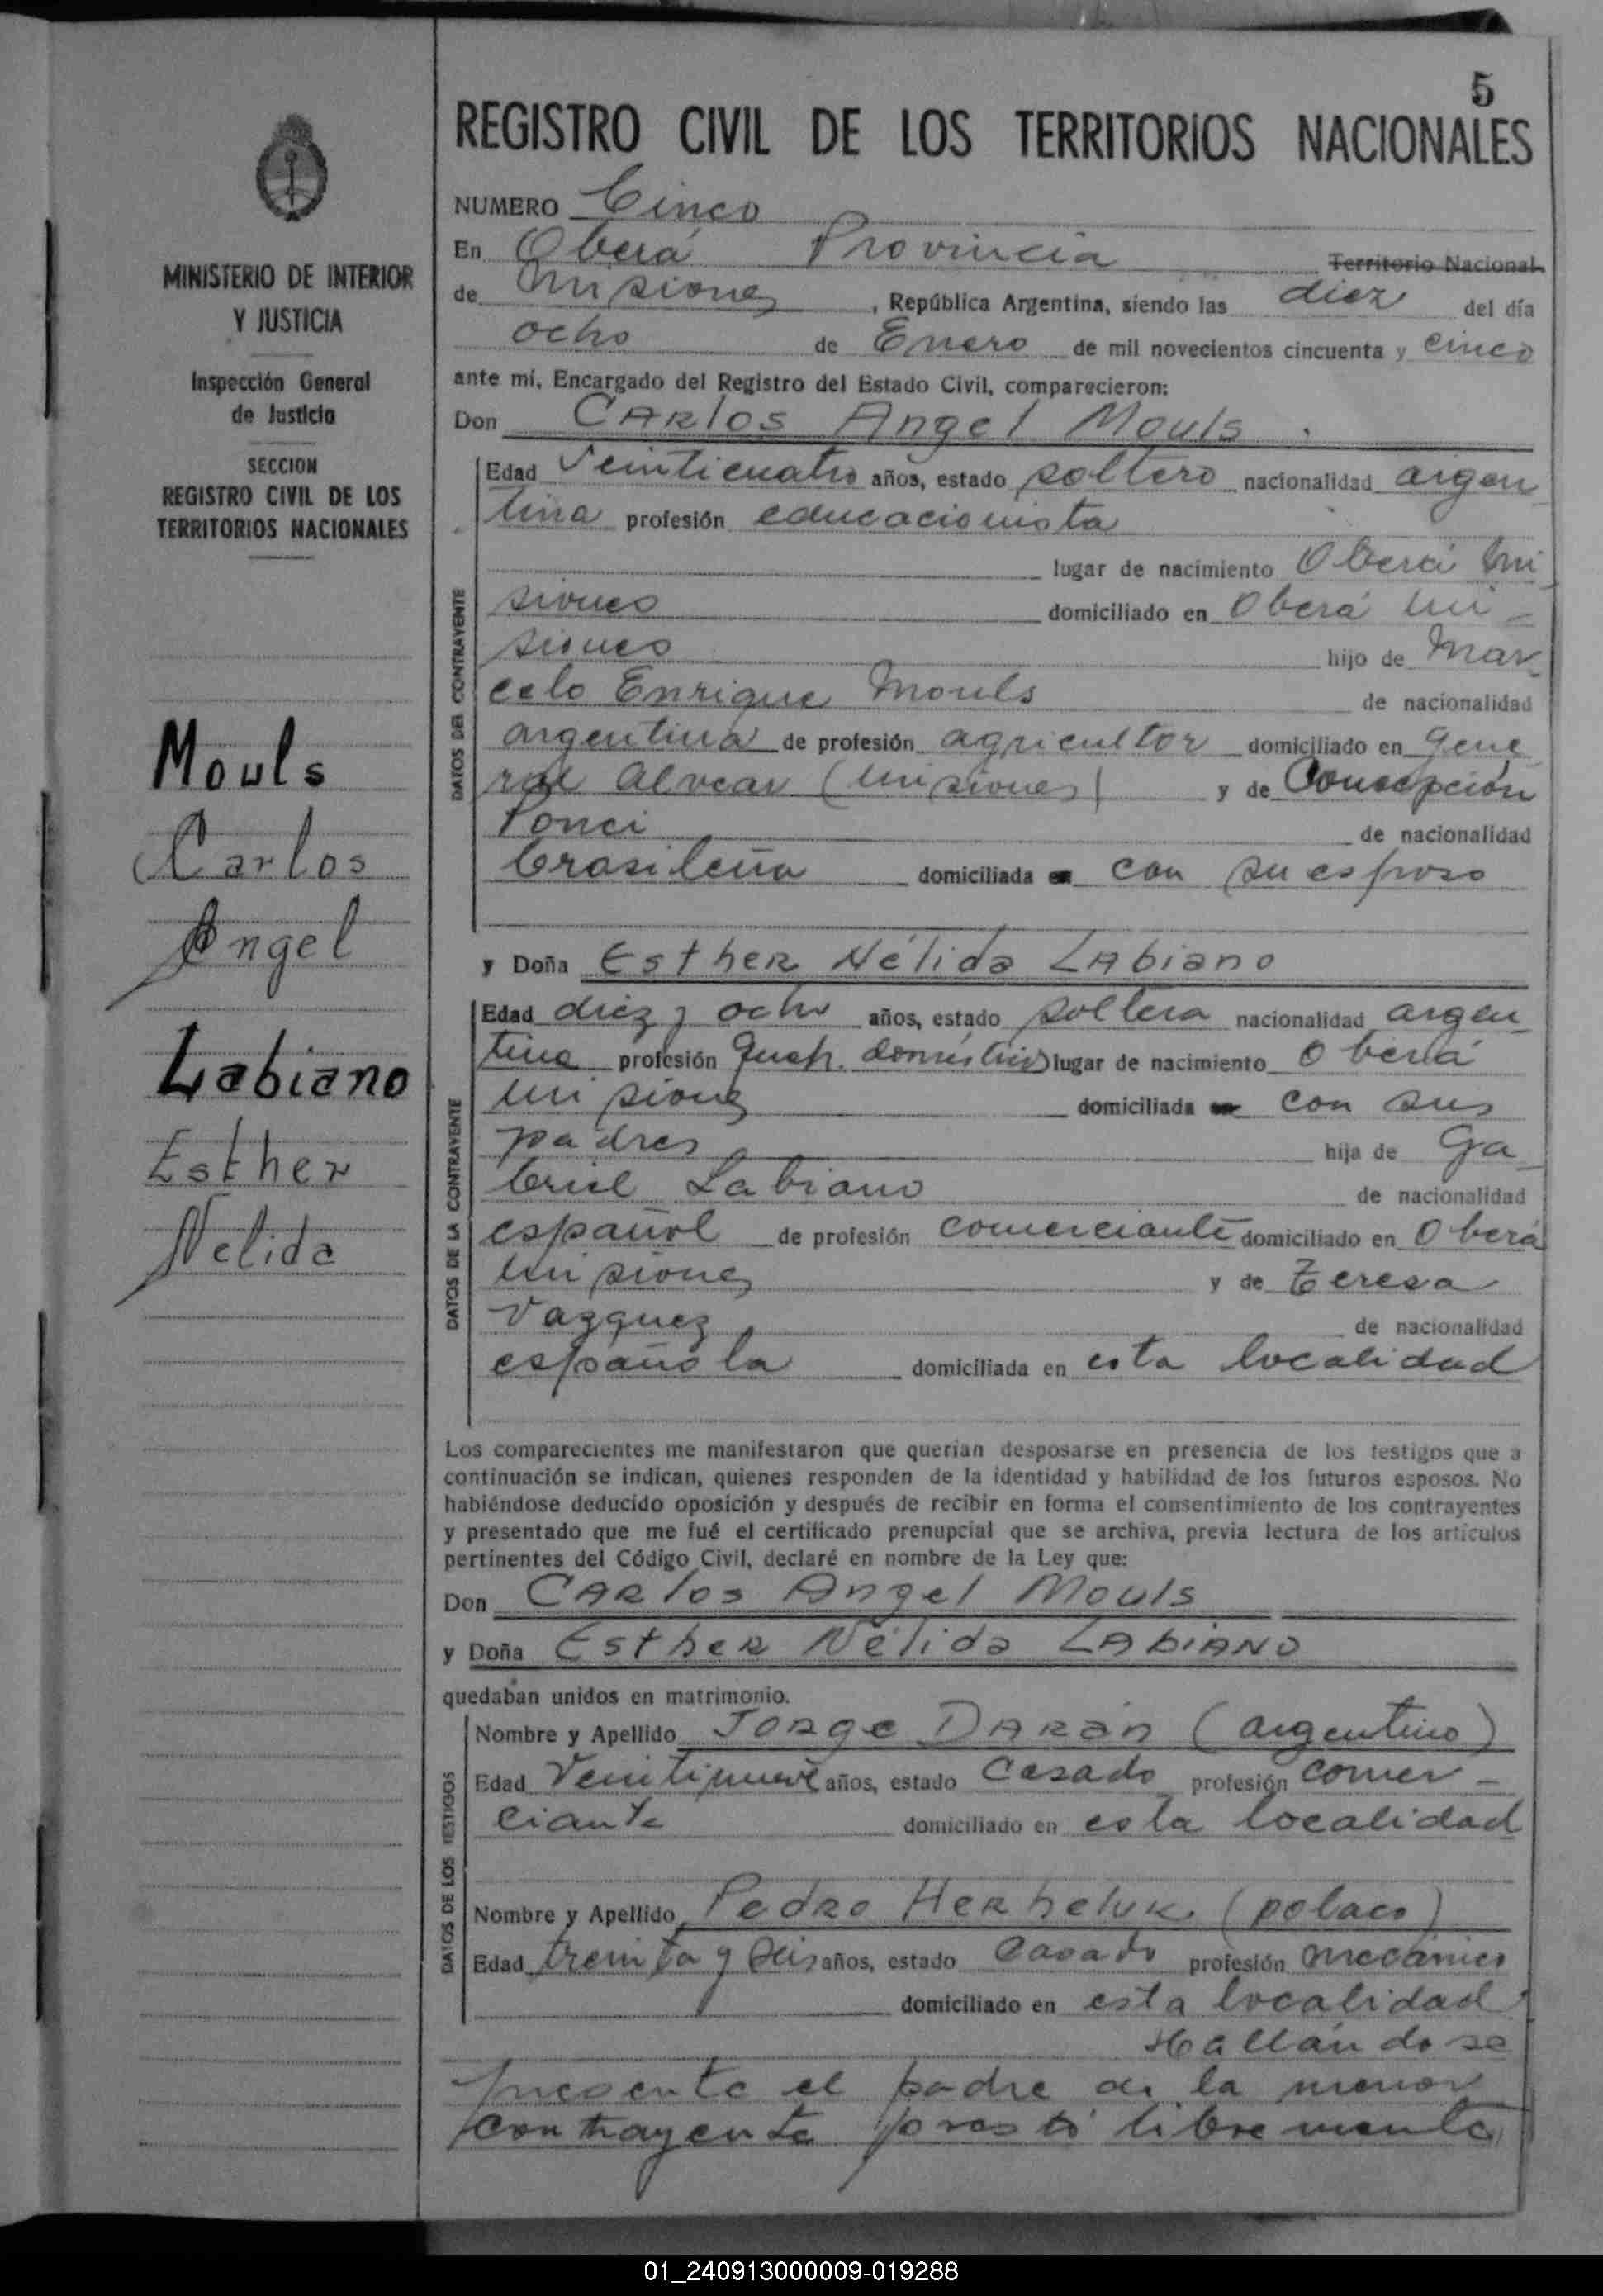 5
REGISTRO CIVIL DE LOS TERRITORIOS NACIONALES
MINISTERIO DE INTERIOR
Y JUSTICIA
Inspección General
de Justicia
SECCION
REGISTRO CIVIL DE LOS
TERRITORIOS NACIONALES
Mouls
Carlos
Angel
Labiano
Esther
Nelida
NUMERO Cinco
En Oberá Provincia Territorio Nacional
de Misiones, República Argentina, siendo las diez del día
ocho de Enero de mil novecientos cincuenta y cinco
ante mí, Encargado del Registro del Estado Civil, comparecieron:
Don CARlos Angel Mouls.
DATOS DEL CONTRAYENTE
Edad Veinticuatro años, estado soltero nacionalidad argen
tina profesión educacionista
lugar de nacimiento Oberá Mi
siones domiciliado en Oberá Mi-
siones hijo de Mar
celo Enrique Mouls de nacionalidad
argentina de profesión agricultor domiciliado en Gene
ral Alvear (Misiones) y de Concepción
Ponci de nacionalidad
brasileña domiciliada en con su esposo
y Doña EstheR Nélida LAbiano
DATOS DE LA CONTRAYENTE
Edad diez y ocho años, estado soltera nacionalidad argen
tina profesión Queh. domésticos lugar de nacimiento Oberá
Misiones domiciliada en con sus
padres hija de Ga
briel Labiano de nacionalidad
español de profesión comerciante domiciliado en Oberá
Misiones y de Teresa
Vazquez de nacionalidad
española domiciliada en esta localidad
Los comparecientes me manifestaron que querían desposarse en presencia de los testigos que a
continuación se indican, quienes responden de la identidad y habilidad de los futuros esposos. No
habiéndose deducido oposición y después de recibir en forma el consentimiento de los contrayentes
y presentado que me fué el certificado prenupcial que se archiva, previa lectura de los artículos
pertinentes del Código Civil, declaré en nombre de la Ley que:
Don CARlos Angel Mouls
y Doña EstheR Nélida LAbiANO
quedaban unidos en matrimonio.
DATOS DE LOS TESTIGOS
Nombre y Apellido JORge DARán (argentino)
Edad Veintinueve años, estado Casado profesión Comer-
ciante domiciliado en esta localidad
Nombre y Apellido PedRo (polaco)
Edad treinta y seis años, estado Casado profesión mecánico
domiciliado en esta localidad
Hallándose
presente el padre de la menor
contrayente prestó libremente
01_240913000009-019288